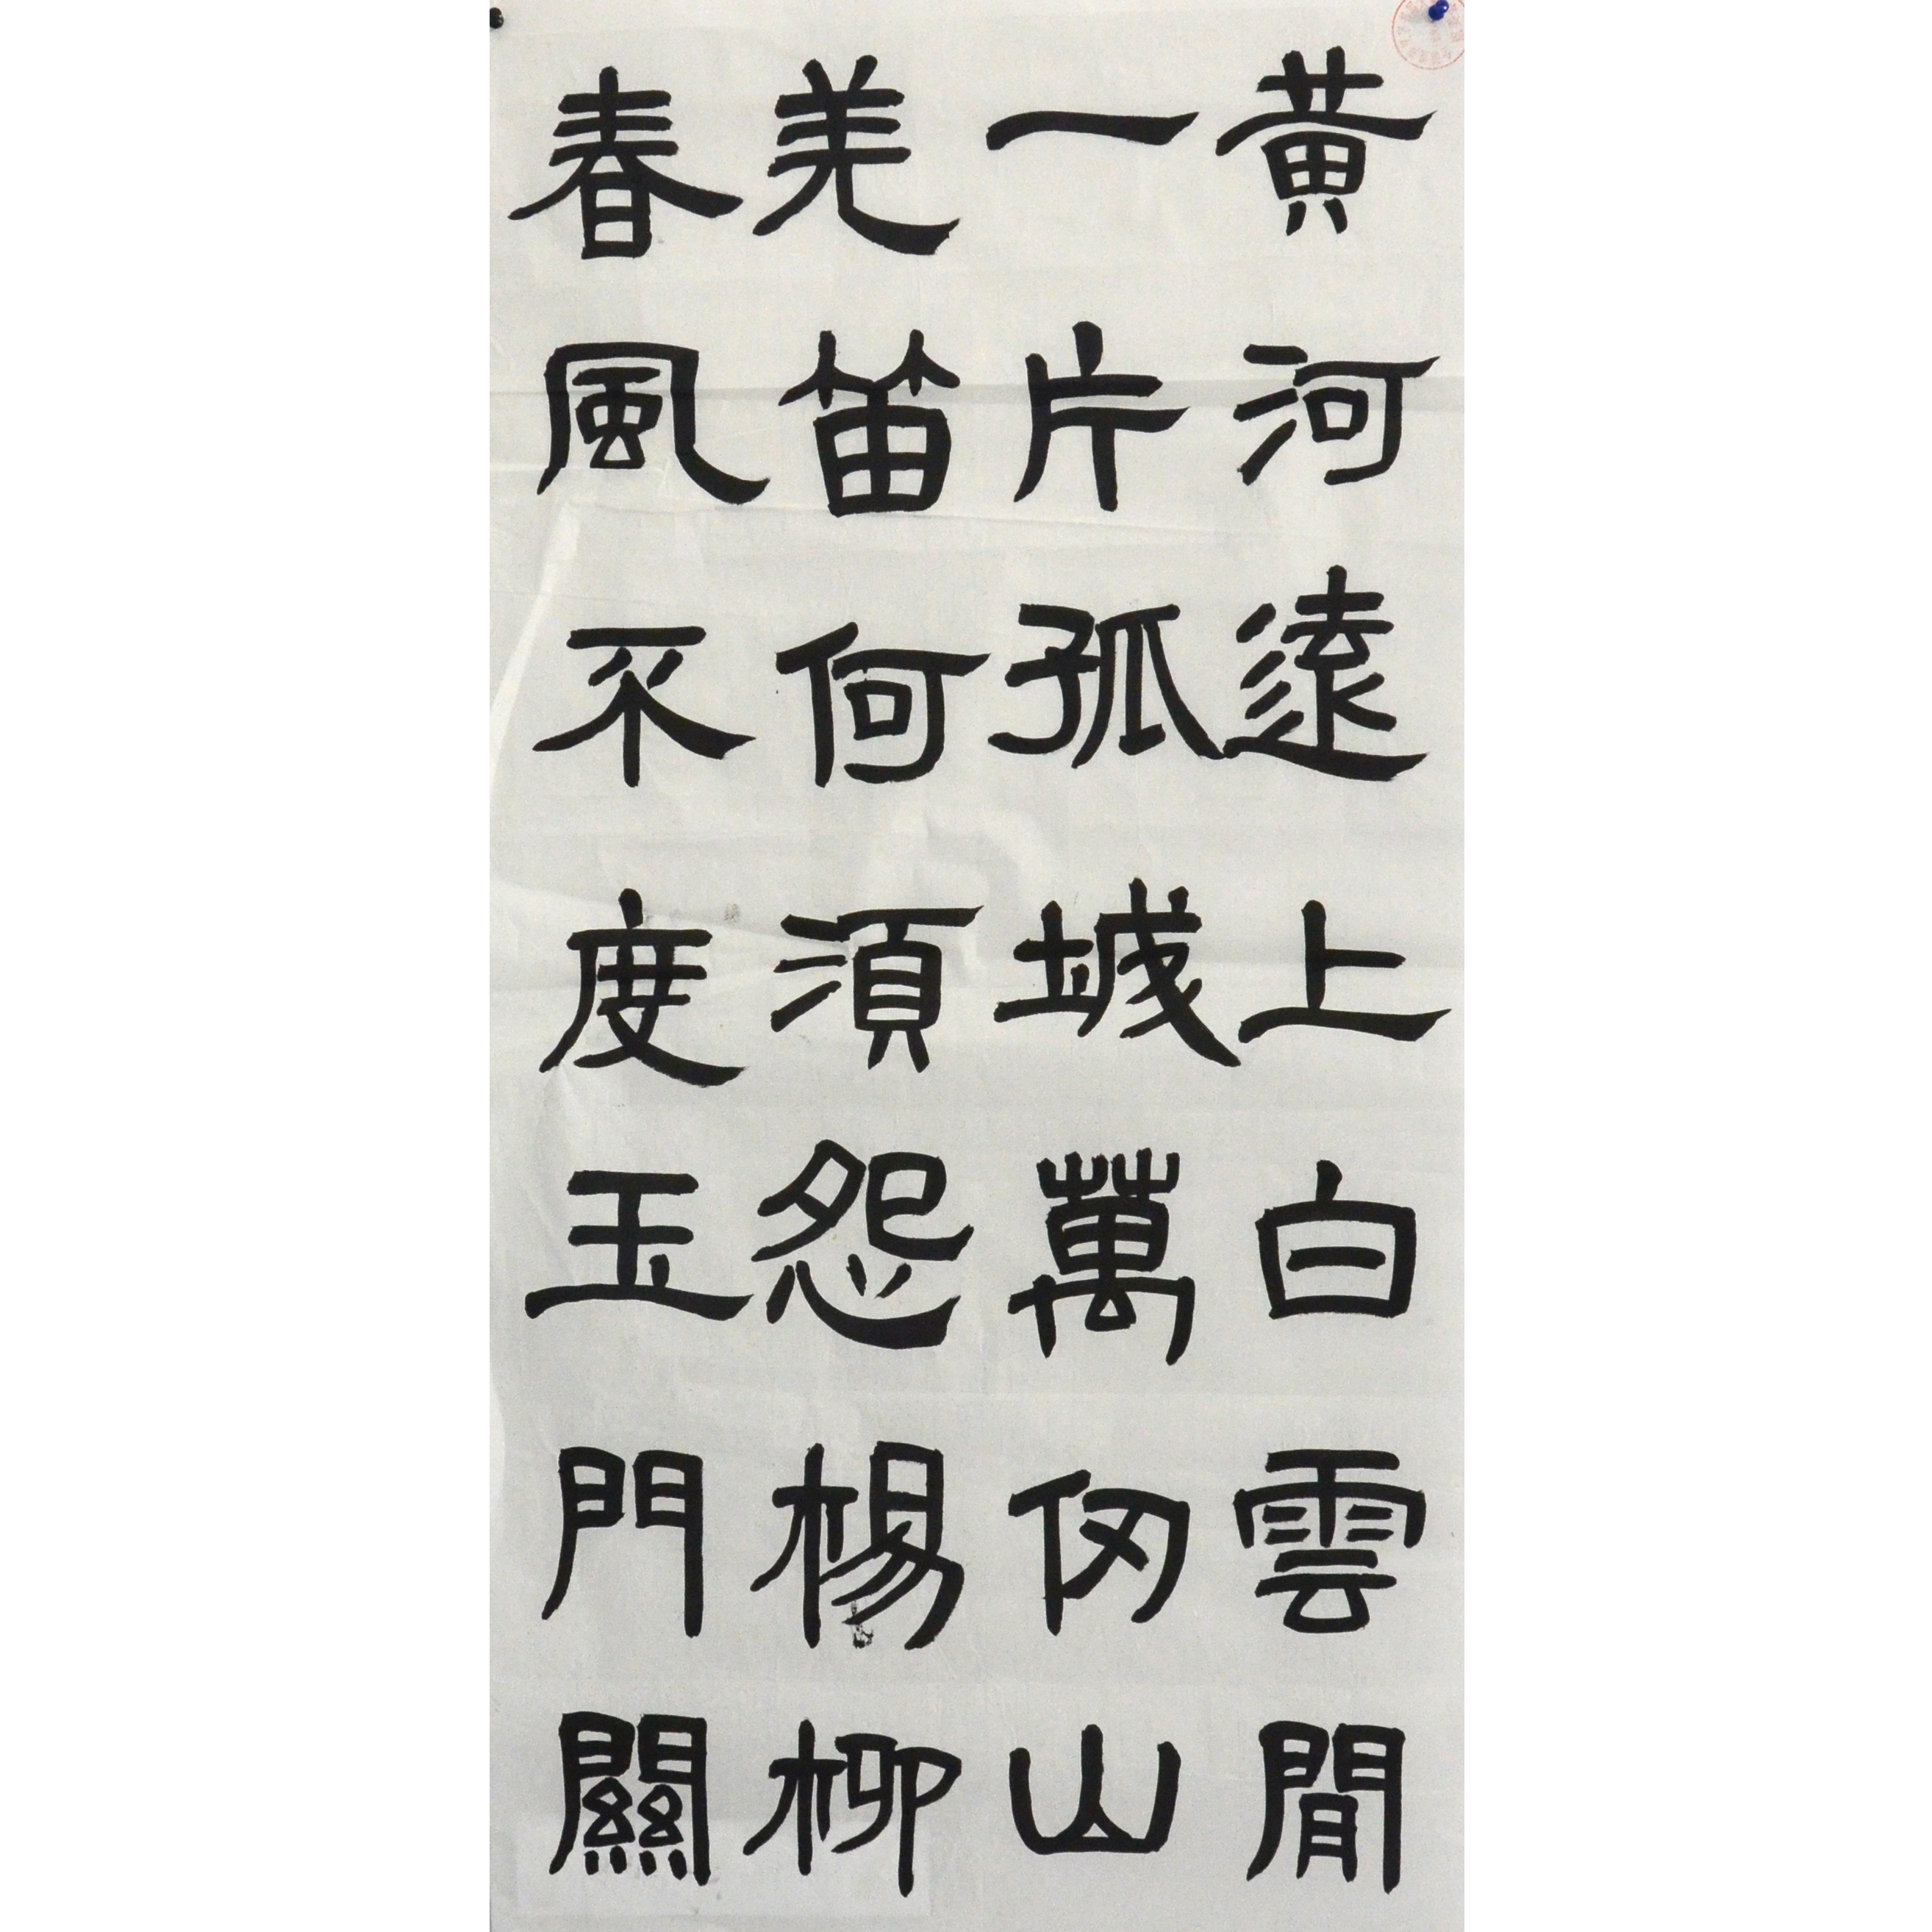 黃河遠上白雲閒
一片孤城萬仞山
羌笛何須怨楊柳
春風不度玉門關